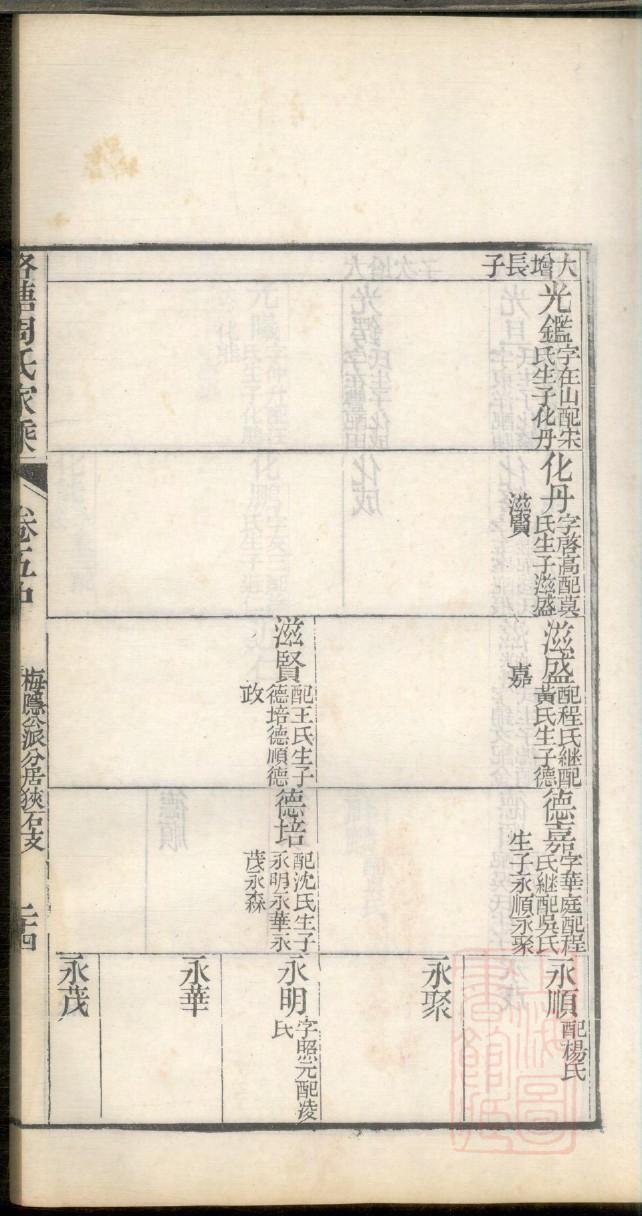 大增長子
光鑑
字在山配宋
氏生子化丹
化丹
字啓高配莫
氏生子滋盛
滋賢
滋盛
配程氏継配
黃氏生子德
嘉
德嘉
字華庭配程
氏継配吳氏
生子永順永聚
永順
配楊氏
永聚
滋賢
配王氏生子
德培德順德
政
德培
配沈氏生子
永明永華永
茂永森
永明
字照元配凌
氏
永華
永茂
塘周氏家乘
卷五中
梅隱公派分居狹石支